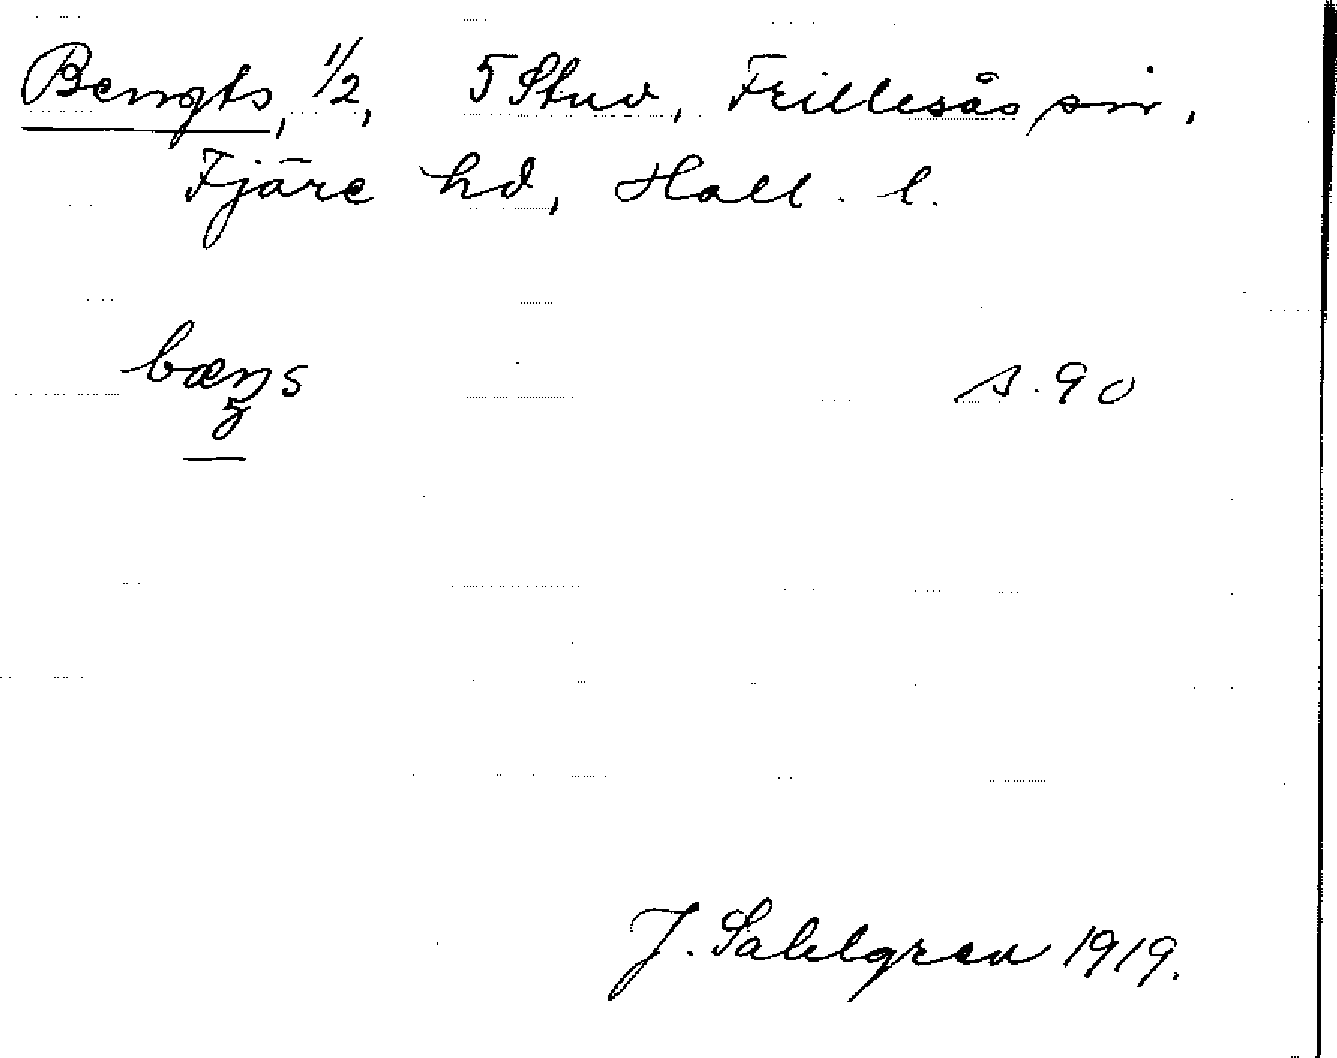 Bengts, 1/2, 5 Stuv, Frillesås sn,
Fjäre hd, Hall. l.
s. 90
J. Sahlgren 1919.